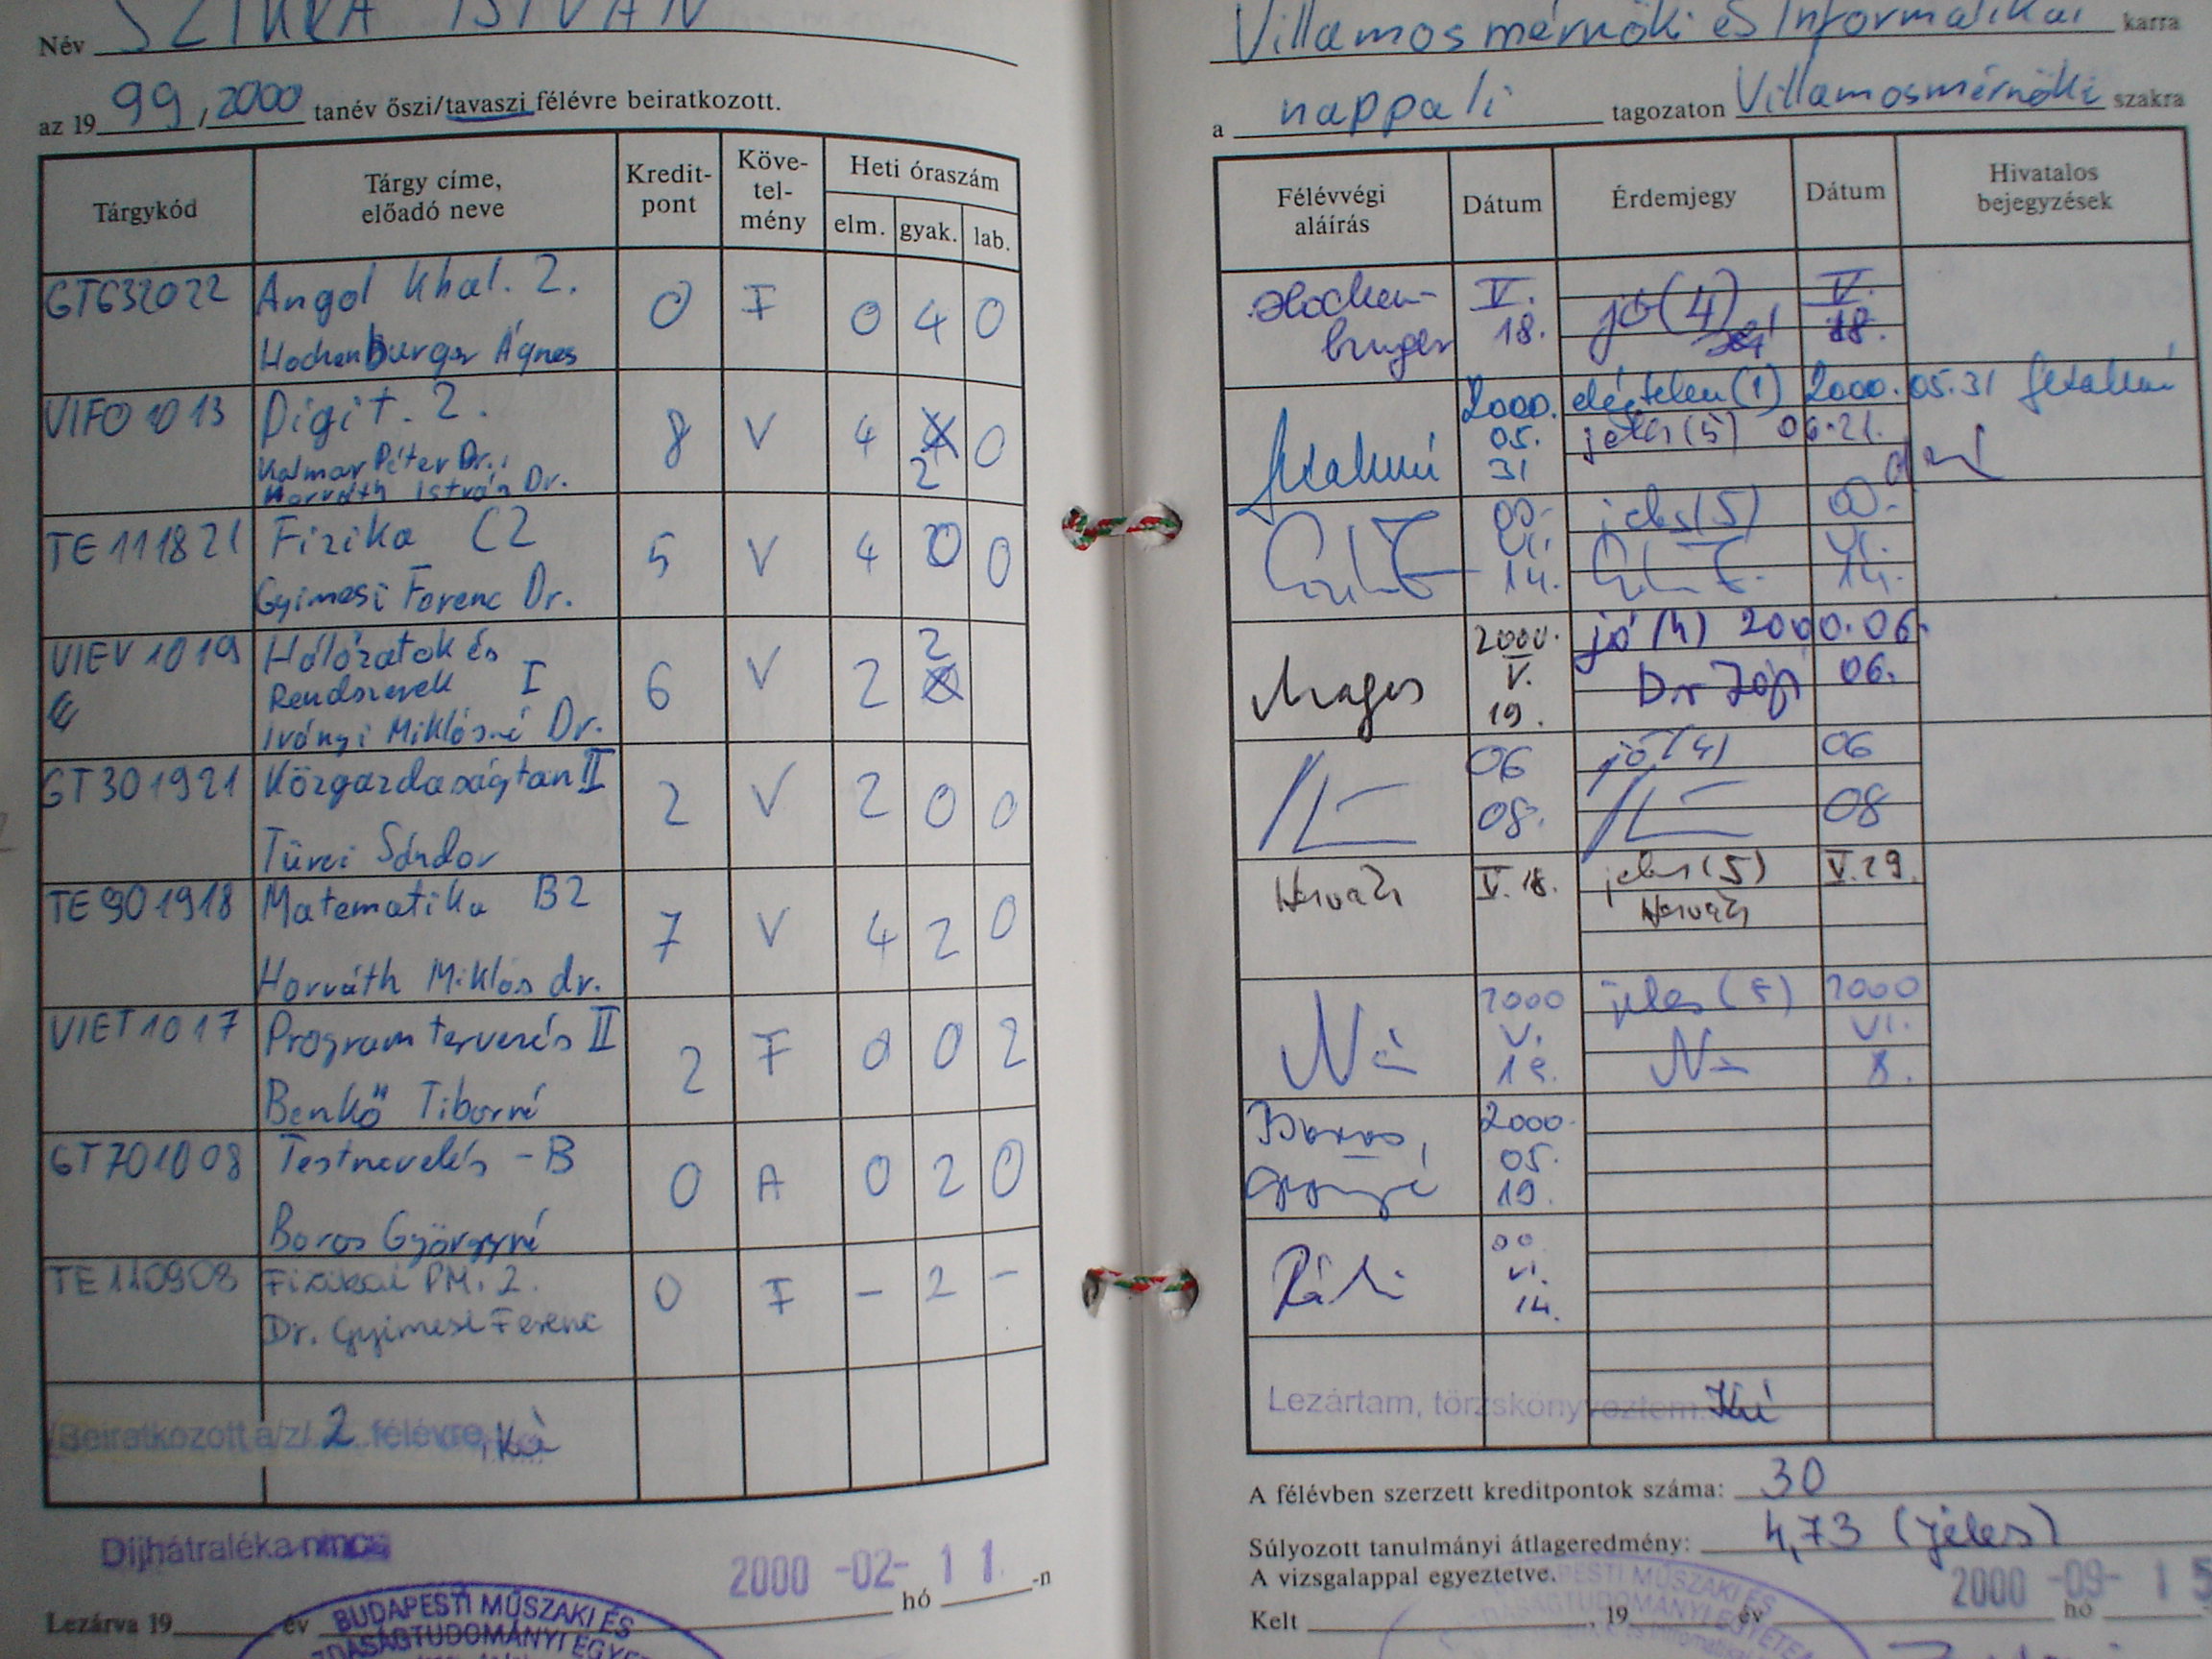 Név SZIKRA ISTVÁN
az 19 99/2000 tanév őszi/tavaszi félévre beiratkozott.
Tárgykód
Tárgy címe,
előadó neve
Kredit-
pont
Köve-
tel-
mény
Heti óraszám
elm. gyak. lab.
GT632022 Angol khal. 2. 0 F 0 4 0
Hochenburger Ágnes
VIFO1013 Digit. 2. 8 V 4 2 0
Kalmár Péter Dr.,
Horváth István Dr.
TE111821 Fizika C2 5 V 4 0 0
Gyimesi Ferenc Dr.
VIEV1019 Hálózatok és 6 V 2 2
Rendszerek I
Iványi Miklósné Dr.
GT301921 Közgazdaságtan II 2 V 2 0 0
Türei Sándor
TE901918 Matematika B2 7 V 4 2 0
Horváth Miklós dr.
VIET1017 Program tervezés II 2 F 0 0 2
Benkő Tiborné
GT701008 Testnevelés - B 0 A 0 2 0
Boros Györgyné
TE110908 Fizikai PM. 2. 0 F - 2 -
Dr. Gyimesi Ferenc
Beiratkozott a/z/ 2 félévre
Díjhátraléka nincs
2000 -02- 11
Lezárva 19 év hó -n
BUDAPESTI MŰSZAKI ÉS
Villamosmérnöki és Informatikai karra
a nappali tagozaton Villamosmérnöki szakra
Félévvégi
aláírás
Dátum
Érdemjegy
Dátum
Hivatalos
bejegyzések
Hochen-
burger
V.
18.
jó (4)
V.
18.
2000.
05.
31
elégtelen (1) 2000.05.31
jeles (5) 06.21.
00.
VI.
14.
jeles (5)
00.
VI.
14.
2000.
V.
19.
jó (4) 2000.06.
06.
06
08.
jó (4)
06
08
Horváth V. 18. jeles (5) V. 29.
Horváth
2000
V.
19.
jeles (5)
2000
VI.
8.
Boros
2000.
05.
19.
00
VI.
14.
Lezártam, törzskönyveztem.
A félévben szerzett kreditpontok száma: 30
Súlyozott tanulmányi átlageredmény: 4,73 (jeles)
A vizsgalappal egyeztetve.
2000 -09- 15
Kelt , 19 év hó